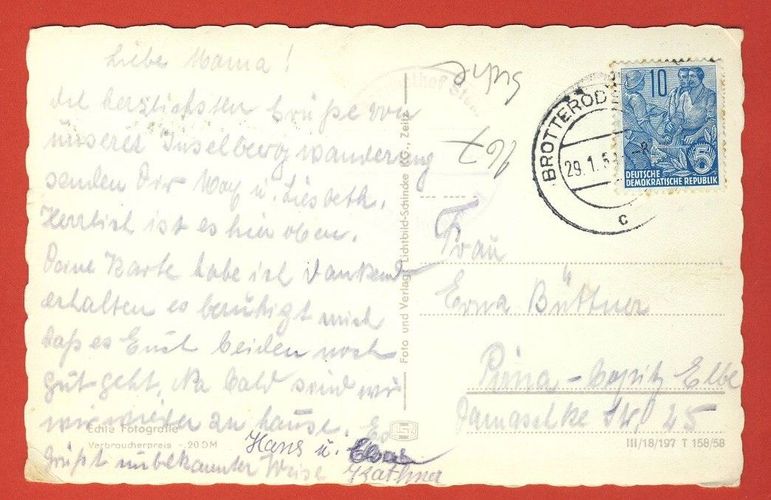 Liebe Mama!
die herzlichsten Grüße von
unserer Inselbergwanderung
senden Dir Way u. Liesbeth.
Herrlich ist es hier oben.
Deine Karte habe ich dankend
erhalten es beruhigt mich
daß es Euch beiden noch
gut geht. Na bald sind wir
wieder zu hause. Es
grüßt unbekannter Weise
Hans u.
Kathina
Echte Fotografie
Verbraucherpreis -.20 DM
Foto und Verlag: Lichtbild-Schincke KG., Zeitz
167
BROTTEROD
29.1.59
c
10
5
DEUTSCHE
DEMOKRATISCHE REPUBLIK
Frau
Erna Büttner
Pirna-Copitz Elbe
Damaschke Str 25
III/18/197 T 158/58